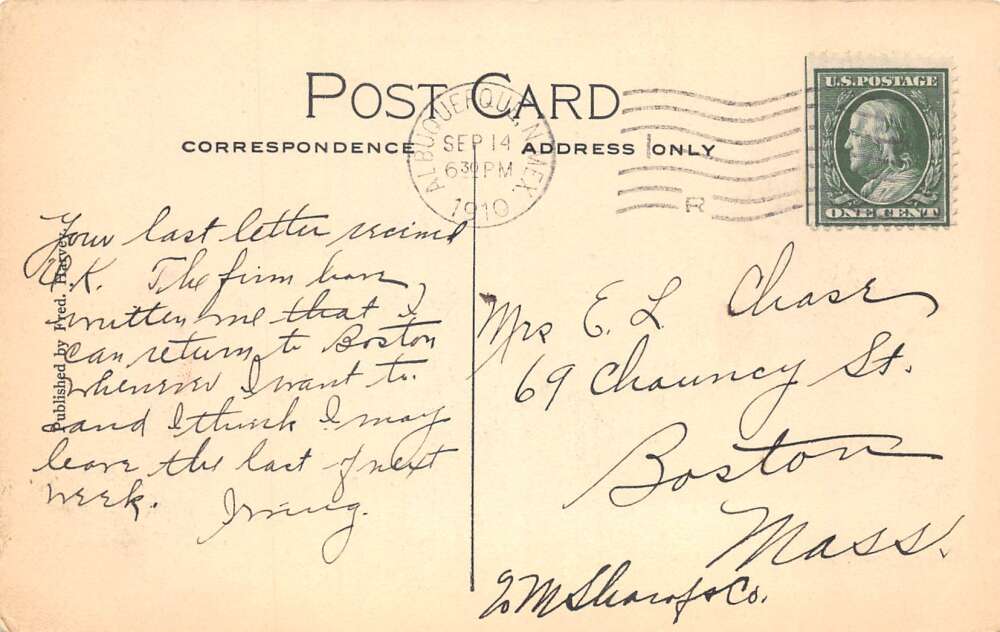 POST CARD
CORRESPONDENCE
ADDRESS ONLY
ALBUQUERQUE, N. MEX.
SEP 14
630 PM
1910
R
U.S. POSTAGE
ONE CENT
Published by Fred. Harvey.
Your last letter received
O.K. The firm have
written me that I
can return to Boston
whenever I want to.
and I think I may
leave the last of next
week.
Irving.
Mrs E. L Chase
69 Chauncy St.
Boston
Mass.
Co.